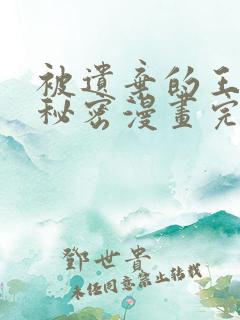 被遺棄的王
秘密漫畫完
鄧世貴
未经同意禁止转载